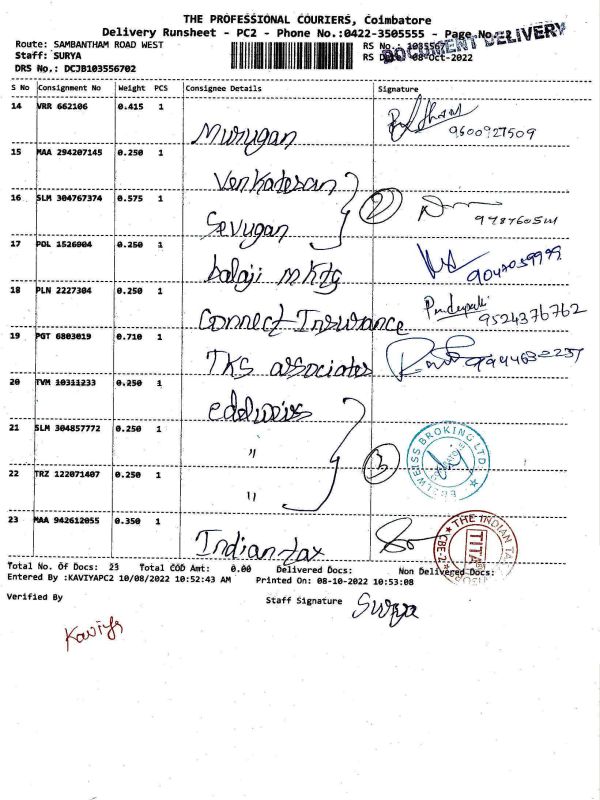 THE PROFESSIONAL COURIERS, Coimbatore
Delivery Runsheet - PC2 - Phone No.:0422-3505555 - Page No.: 2
DOCUMENT DELIVERY
Route: SAMBANTHAM ROAD WEST
RS No.: 1035567
Staff: SURYA
RS Date: 08-Oct-2022
DRS No.: DCJB103556702
S No Consignment No Weight PCS Consignee Details Signature
14 VRR 662106 0.415 1 Murugan 9600927509
15 MAA 294207145 0.250 1 Venkatesan
16 SLM 304767374 0.575 1 Sevugan 2
17 POL 1526004 0.250 1 balaji mktg 9047059999
18 PLN 2227304 0.250 1 Connect Insurance 9524376762
19 PGT 6803019 0.710 1 TKS associates
20 TVM 10311233 0.250 1 edelweiss
21 SLM 304857772 0.250 1 " 3
EDELWEISS BROKING LTD
22 TRZ 122071407 0.250 1 "
23 MAA 942612055 0.350 1 Indian tax
THE INDIAN TA
CBE-2
TITA
Total No. Of Docs: 23 Total COD Amt: 0.00 Delivered Docs: Non Delivered Docs:
Entered By :KAVIYAPC2 10/08/2022 10:52:43 AM Printed On: 08-10-2022 10:53:08
Verified By Staff Signature Surya
Kaviya